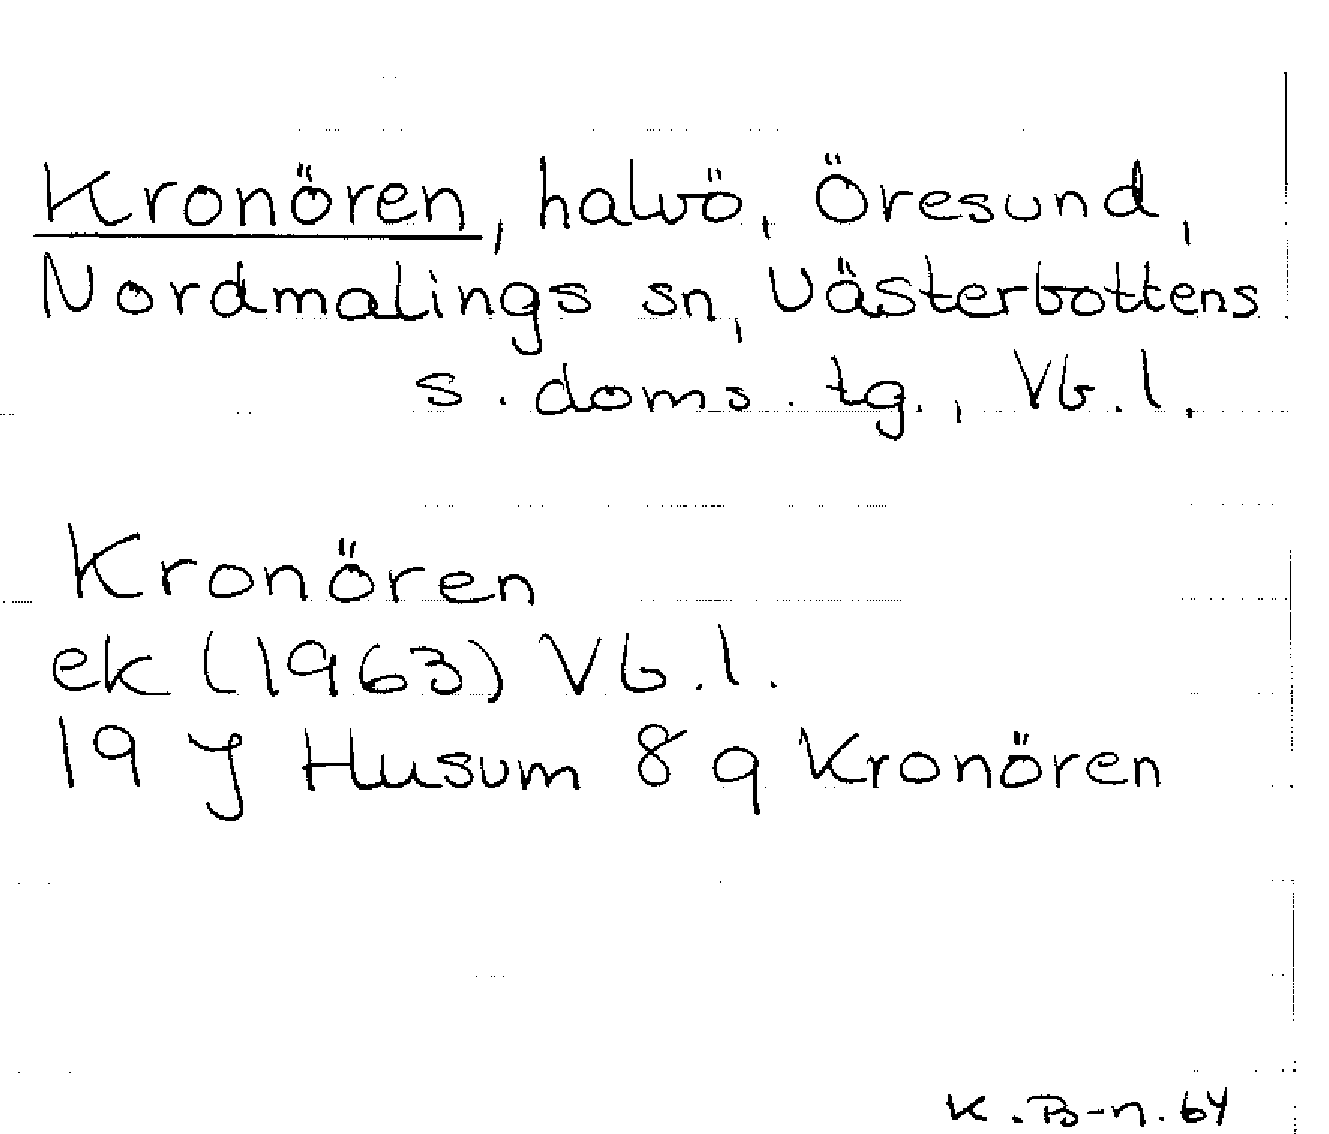 Kronören, halvö, Öresund,
Nordmalings sn, Västerbottens
s. doms. tg., Vb. l.
Kronören
ek (1963) Vb. l.
19 J Husum 8 q Kronören
K. B-n. 64